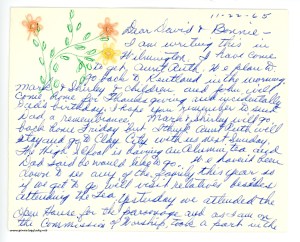 11-22-65
Dear David & Bonnie -
I am writing this in
Wilmington. I have come
to get Aunt Ruth. We plan to
go back to Kentland in the morning.
Mark & Shirley & children, and John will
come home for Thanksgiving, and incidentally
Dad's birthday. I hope you remember to send
Dad, a remembrance. Mark & Shirley will go
back home Friday but I think Aunt Ruth will
stay and go to Clay City with us next Sunday.
The High School is having an Alumni tea and
Dad said he would like to go. We haven't been
down to see any of the family this year so
if we get to go will visit relatives besides
attending the Tea. Yesterday we attended the
Open House for the parsonage and as I am on
the Commission of Worship, took a part in the